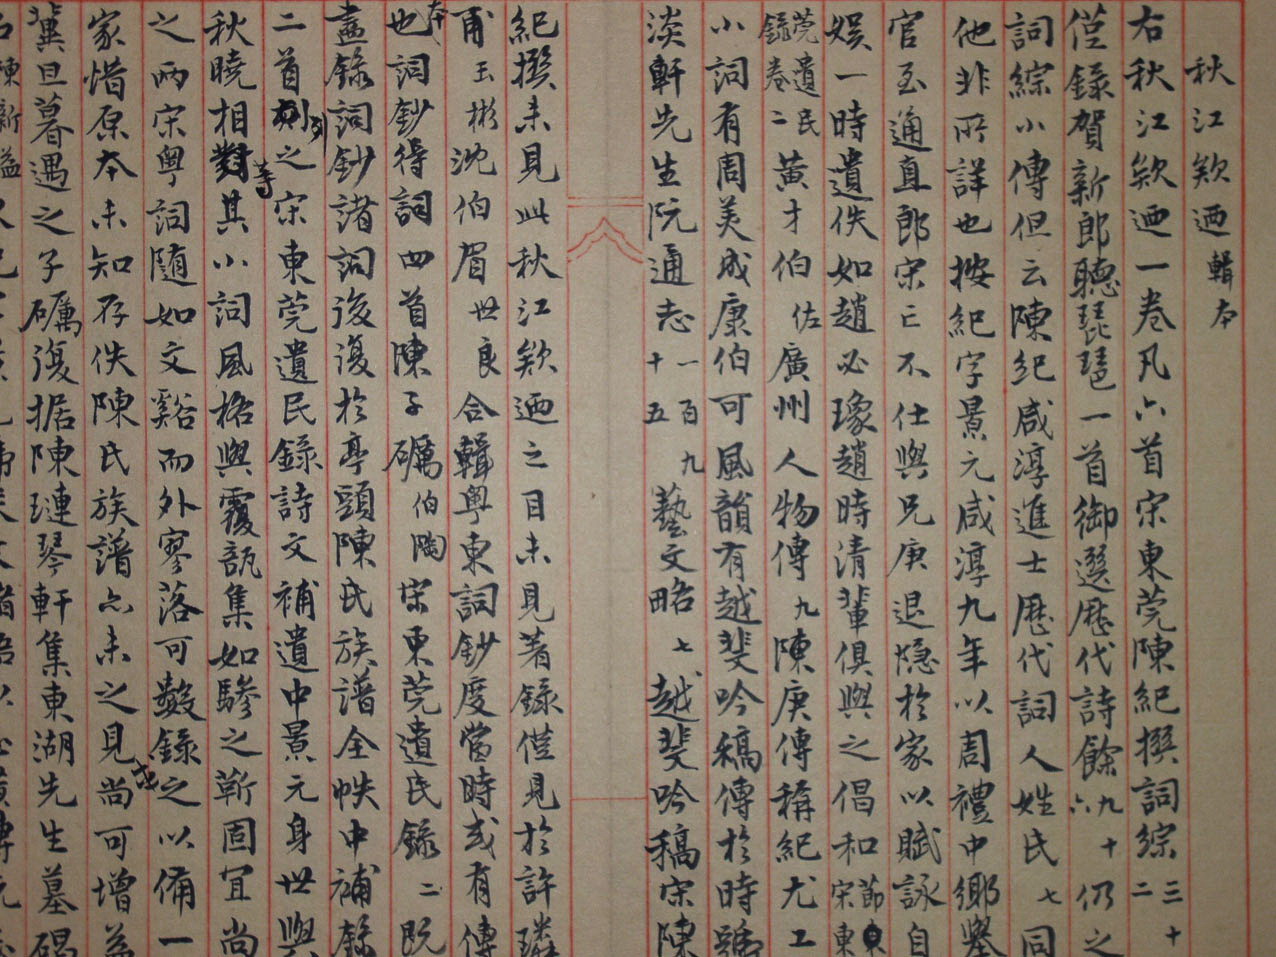 秋江欸迺輯本
右秋江欸迺一卷凡六首宋東莞陳紀撰詞綜三十二
僅錄賀新郎聽琵琶一首御選歷代詩餘九十六仍之
詞綜小傳但云陳紀咸淳進士歷代詞人姓氏七同
他非所詳也按紀字景元咸淳九年以周禮中鄉舉
官至通直郎宋亡不仕與兄庚退隱於家以賦詠自
娛一時遺佚如趙必瑑趙時清輩俱與之倡和節宋東
莞遺民錄卷二黃才伯佐廣州人物傳九陳庚傳稱紀尤工
小詞有周美成康伯可風韻有越斐吟稿傳於時號
淡軒先生阮通志一百九十五藝文略七越斐吟稿宋陳
紀撰未見此秋江欸迺之目未見著錄僅見於許璘
甫玉彬沈伯眉世良合輯粵東詞鈔度當時或有傳本
也詞鈔得詞四首陳子礪伯陶宋東莞遺民錄二既
盡錄詞鈔諸詞後復於亭頭陳氏族譜全帙中補錄
二首列之宋東莞遺民錄詩文補遺中景元身世與
秋曉相等其小詞風格與覆瓿集如驂之靳固宜尚
之兩宋粵詞隨如文谿而外寥落可數錄之以備一
家惜原本未知存佚陳氏族譜亦未之見尚可增益
冀旦暮遇之子礪復據陳璉琴軒集東湖先生墓碣